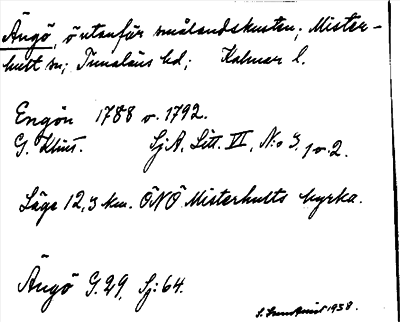 Ängö, ö utanför smålandskusten; Mister-
hult sn; Tunaläns hd; Kalmar l.
Engön 1788 o. 1792.
G. Klint. Sj.A. Litt. VI, N:o 3, 1 o. 2.
Läge 12,3 km. ÖNÖ Misterhults kyrka.
Ängö G.29, Sj:64.
1938.